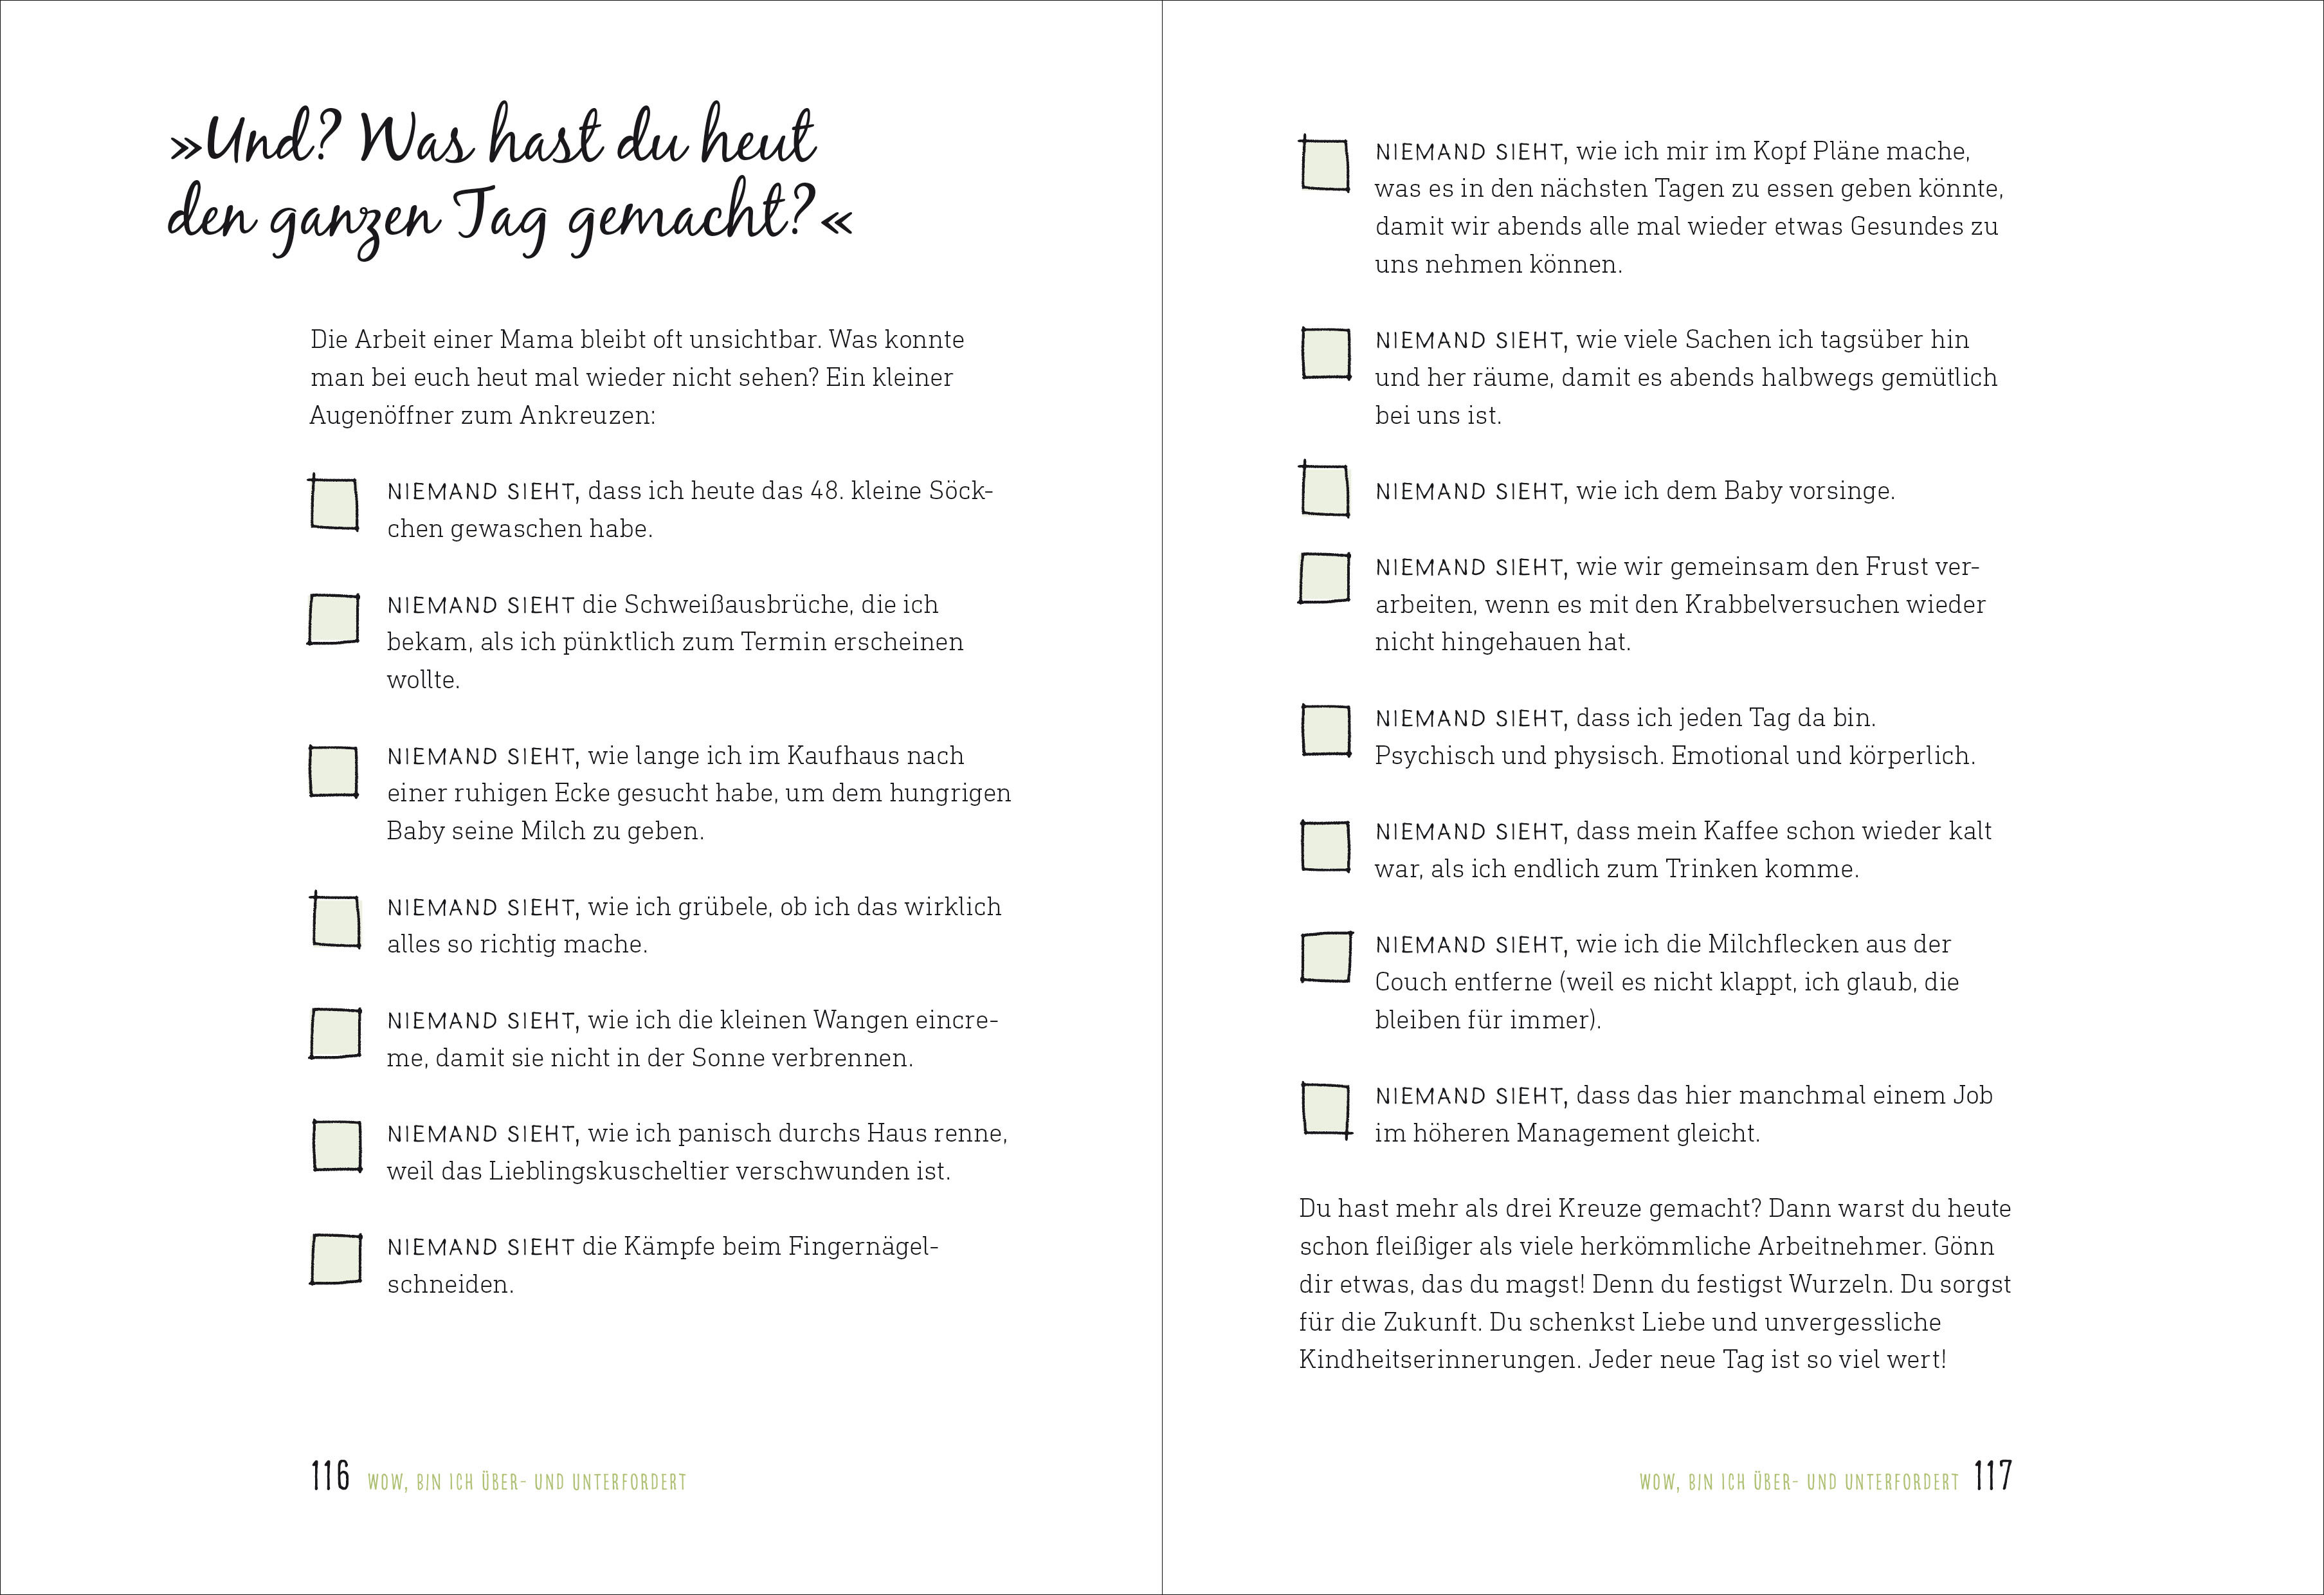 »Und? Was hast du heut
den ganzen Tag gemacht?«
Die Arbeit einer Mama bleibt oft unsichtbar. Was konnte
man bei euch heut mal wieder nicht sehen? Ein kleiner
Augenöffner zum Ankreuzen:
NIEMAND SIEHT, dass ich heute das 48. kleine Söck-
chen gewaschen habe.
NIEMAND SIEHT die Schweißausbrüche, die ich
bekam, als ich pünktlich zum Termin erscheinen
wollte.
NIEMAND SIEHT, wie lange ich im Kaufhaus nach
einer ruhigen Ecke gesucht habe, um dem hungrigen
Baby seine Milch zu geben.
NIEMAND SIEHT, wie ich grübele, ob ich das wirklich
alles so richtig mache.
NIEMAND SIEHT, wie ich die kleinen Wangen eincre-
me, damit sie nicht in der Sonne verbrennen.
NIEMAND SIEHT, wie ich panisch durchs Haus renne,
weil das Lieblingskuscheltier verschwunden ist.
NIEMAND SIEHT die Kämpfe beim Fingernägel-
schneiden.
116 WOW, BIN ICH ÜBER- UND UNTERFORDERT
NIEMAND SIEHT, wie ich mir im Kopf Pläne mache,
was es in den nächsten Tagen zu essen geben könnte,
damit wir abends alle mal wieder etwas Gesundes zu
uns nehmen können.
NIEMAND SIEHT, wie viele Sachen ich tagsüber hin
und her räume, damit es abends halbwegs gemütlich
bei uns ist.
NIEMAND SIEHT, wie ich dem Baby vorsinge.
NIEMAND SIEHT, wie wir gemeinsam den Frust ver-
arbeiten, wenn es mit den Krabbelversuchen wieder
nicht hingehauen hat.
NIEMAND SIEHT, dass ich jeden Tag da bin.
Psychisch und physisch. Emotional und körperlich.
NIEMAND SIEHT, dass mein Kaffee schon wieder kalt
war, als ich endlich zum Trinken komme.
NIEMAND SIEHT, wie ich die Milchflecken aus der
Couch entferne (weil es nicht klappt, ich glaub, die
bleiben für immer).
NIEMAND SIEHT, dass das hier manchmal einem Job
im höheren Management gleicht.
Du hast mehr als drei Kreuze gemacht? Dann warst du heute
schon fleißiger als viele herkömmliche Arbeitnehmer. Gönn
dir etwas, das du magst! Denn du festigst Wurzeln. Du sorgst
für die Zukunft. Du schenkst Liebe und unvergessliche
Kindheitserinnerungen. Jeder neue Tag ist so viel wert!
WOW, BIN ICH ÜBER- UND UNTERFORDERT 117